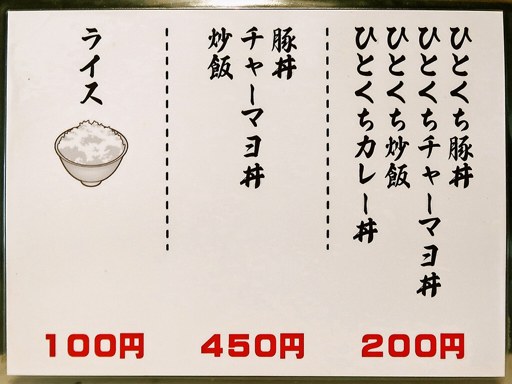 ひとくち豚丼
ひとくちチャーマヨ丼
ひとくち炒飯
ひとくちカレー丼
200円
豚丼
チャーマヨ丼
炒飯
450円
ライス
100円